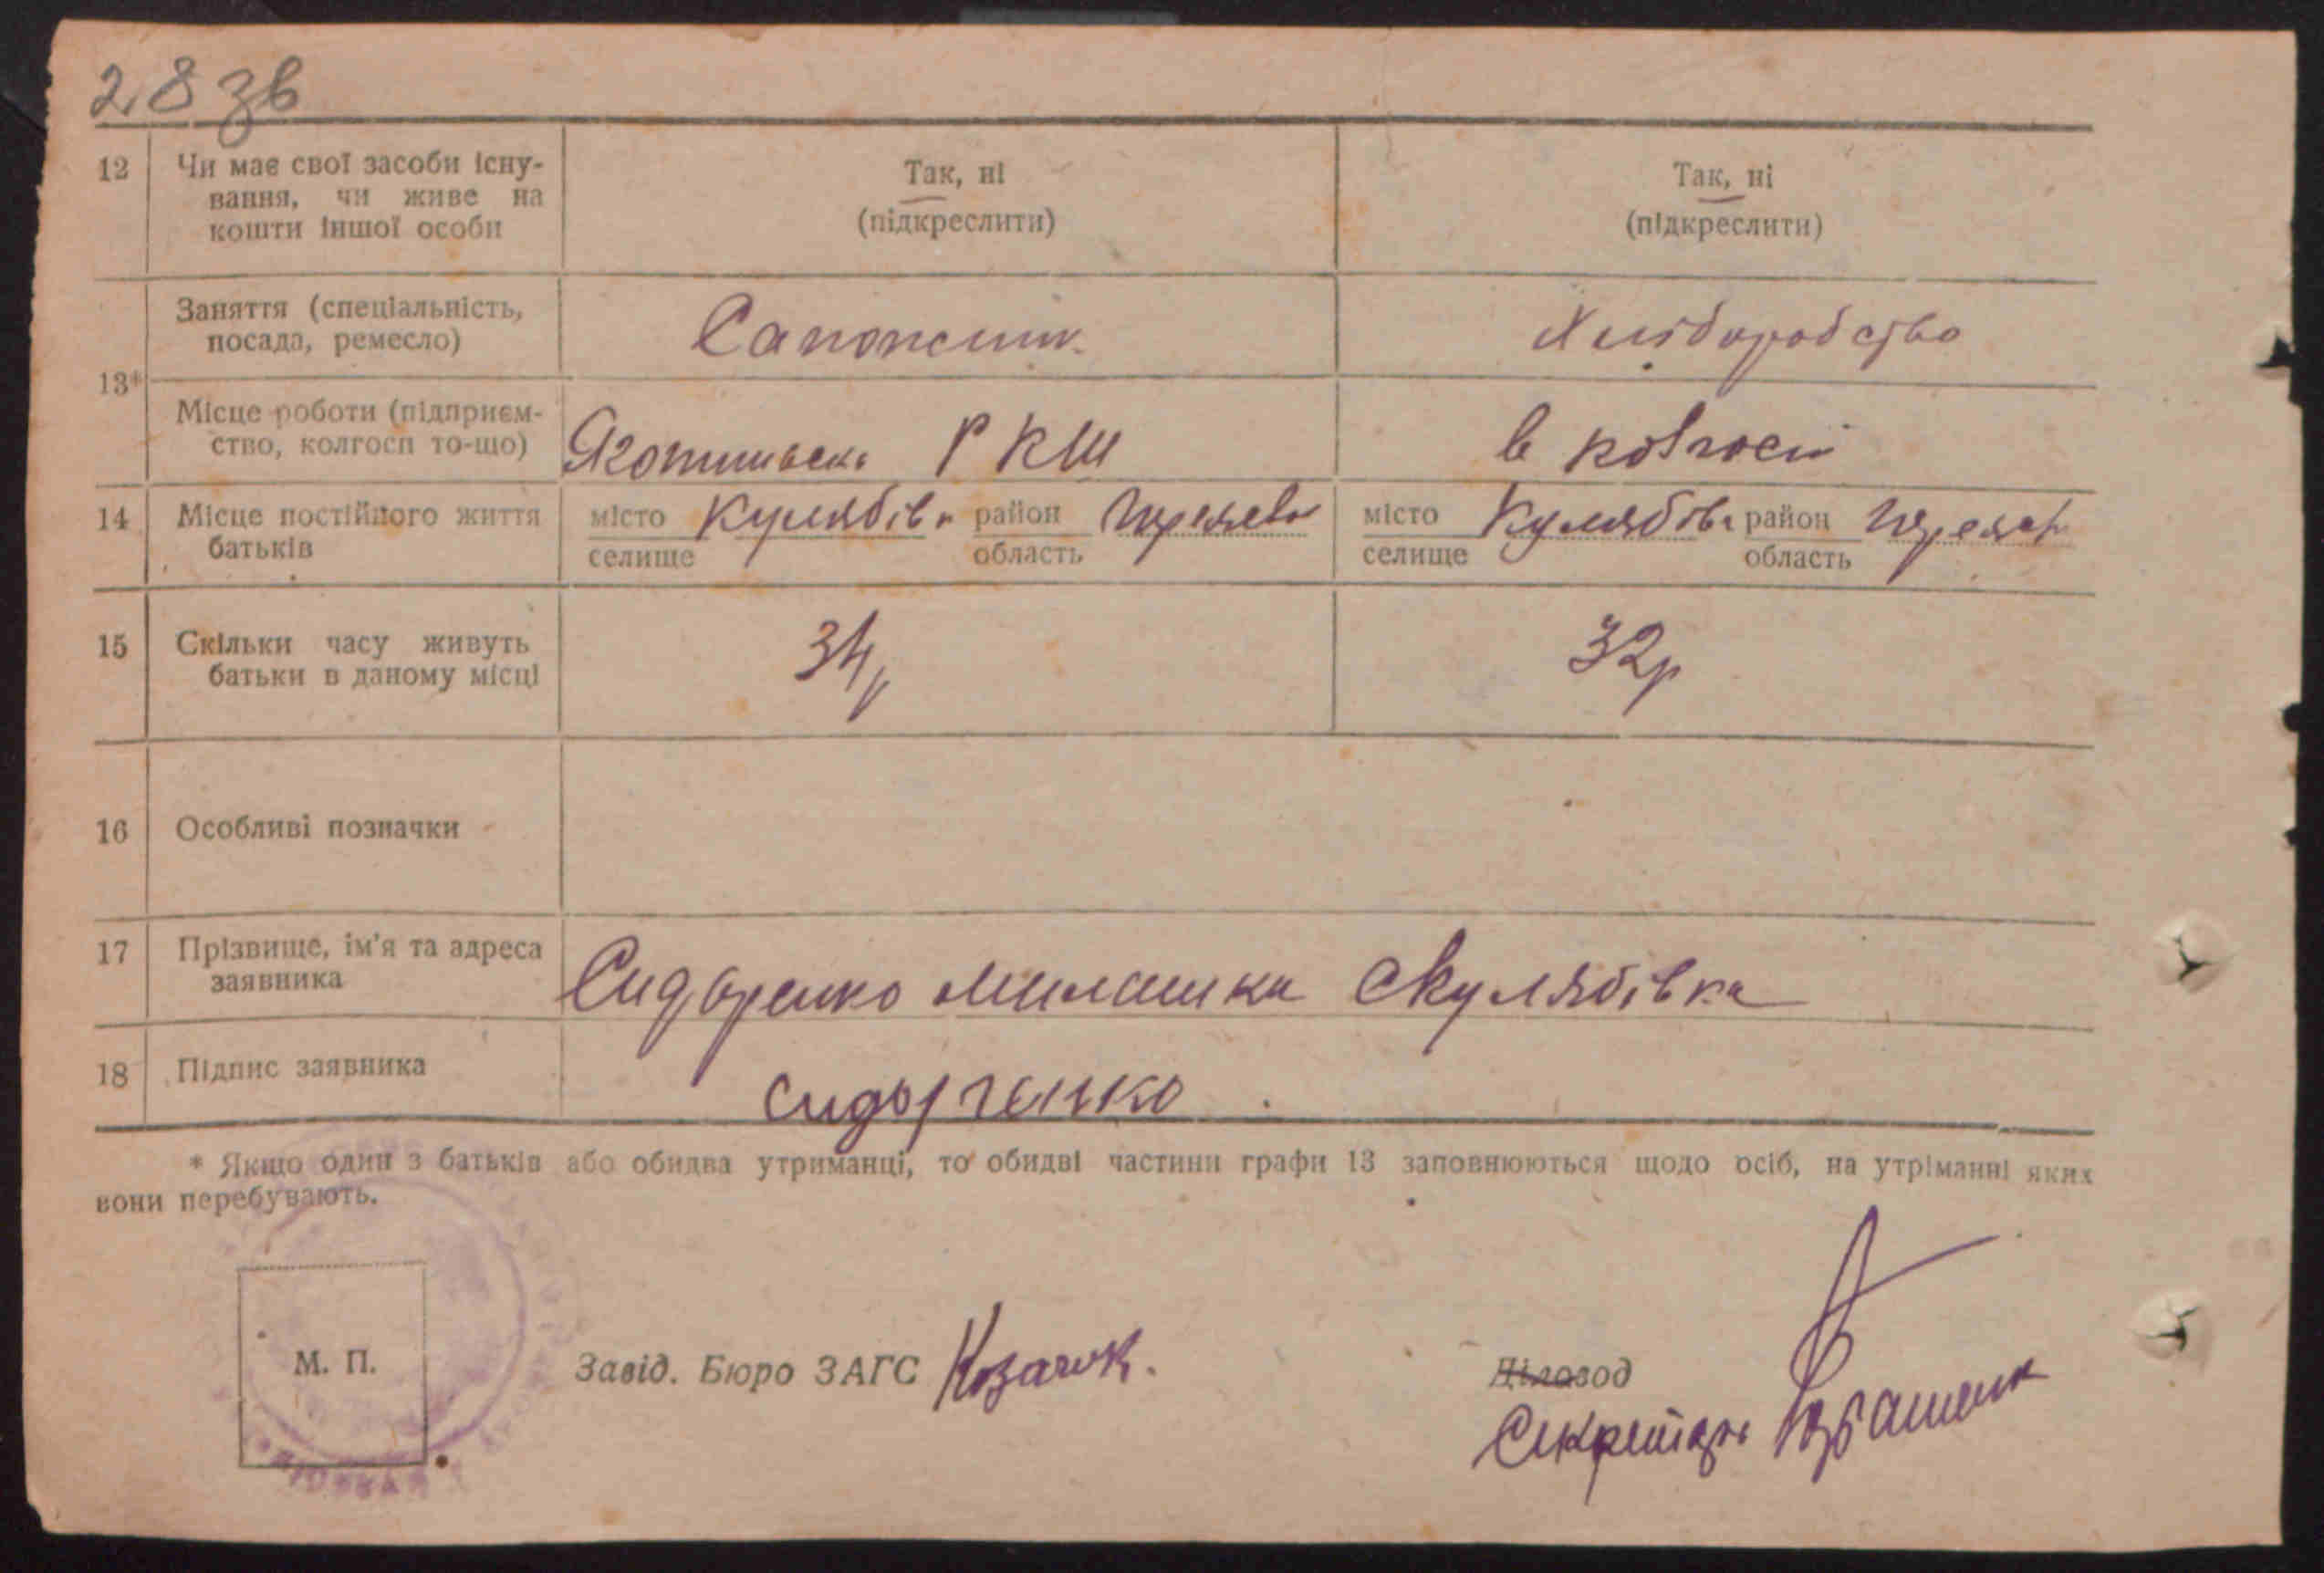 28 зв
12 Чи має свої засоби існу- Так, ні Так, ні
вання, чи живе на (підкреслити) (підкреслити)
кошти іншої особи
Заняття (спеціальність, Сапожник Хліборобство
посада, ремесло)
13*
Місце роботи (підприєм- РКШ в колгосп
ство, колгосп то-що)
14 Місце постійного життя місто Кулябівк район місто Кулябівк район
батьків селище область селище область
15 Скільки часу живуть 34р 32р
батьки в даному місці
16 Особливі позначки
17 Прізвище, ім'я та адреса Сидоренко с Кулябівка
заявника
18 Підпис заявника
* Якщо один з батьків або обидва утриманці, то обидві частини графи 13 заповнюються щодо осіб, на утріманні яких
вони перебувають.
М. П. Завід. Бюро ЗАГС Козачок. Діловод
Секретарь